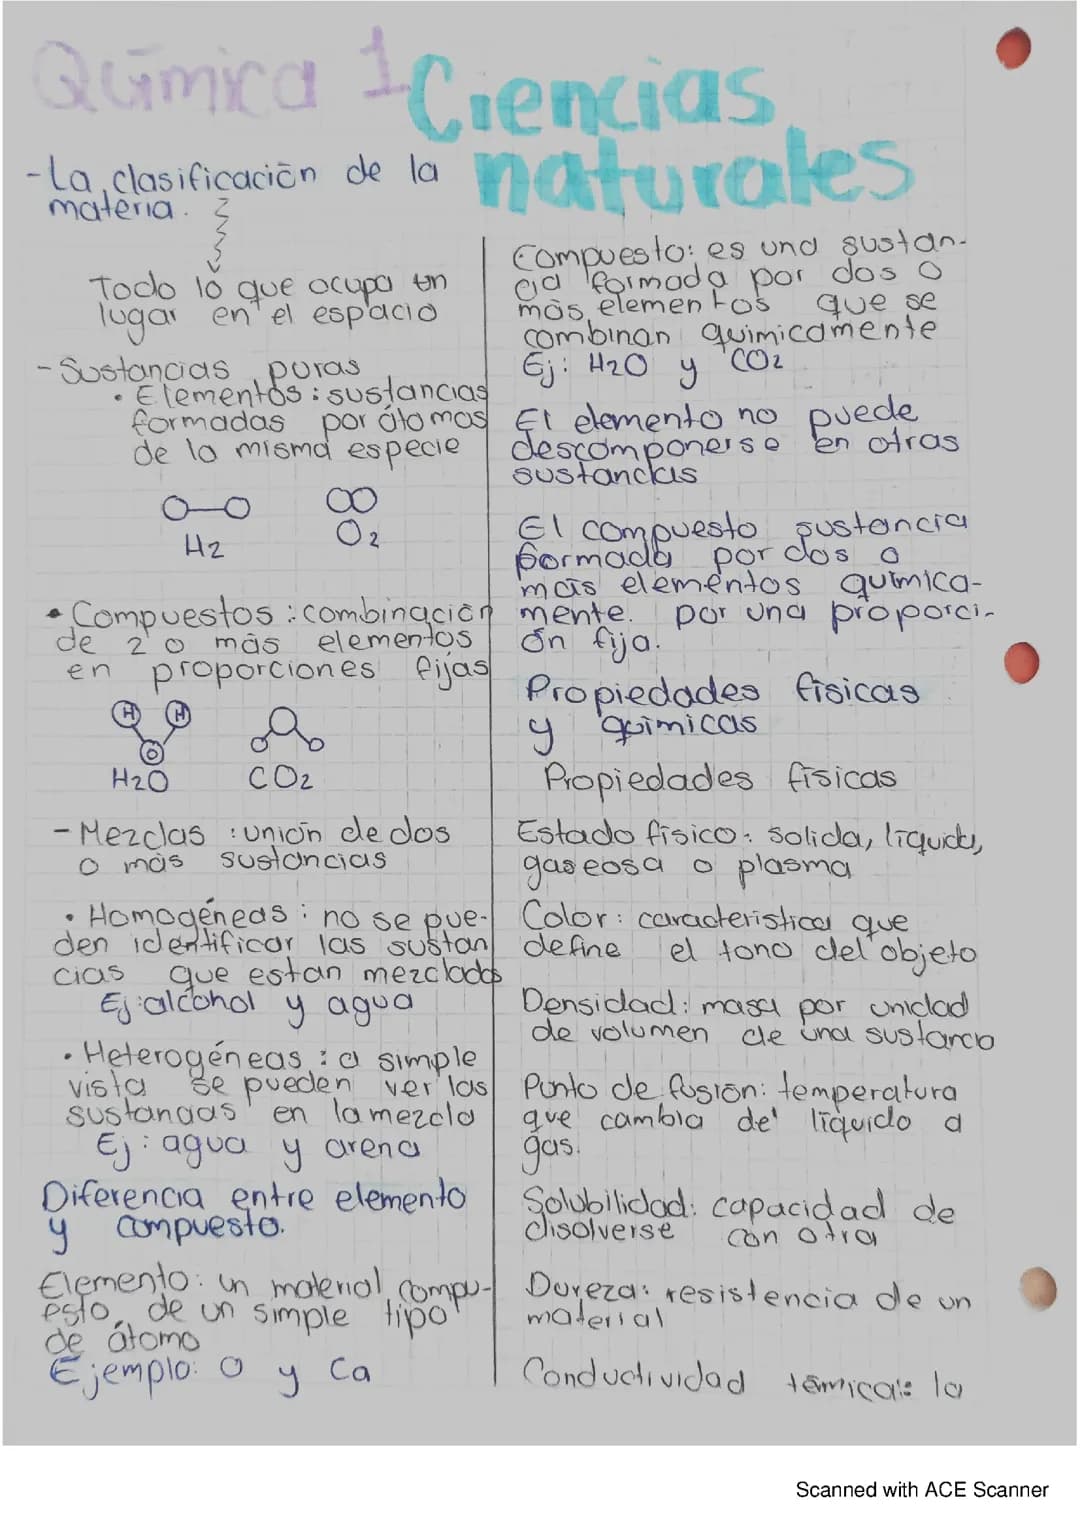 Química 1
Ciencias
naturales
-La clasificación de la
materia.
Todo lo que ocupa un
lugar en el espacio
-Sustancias puras
• Elementos: sustancias
formadas por átomos
de la misma especie
H2 O2
• Compuestos: combinación
de 2 o más elementos
en proporciones fijas
H H
O
H2O CO2
-Mezclas: unión de dos
o más sustancias
• Homogéneas: no se pue-
den identificar las sustan
cias que estan mezclados
Ej: alcohol y agua
• Heterogéneas: a simple
vista se pueden ver las
sustancias en la mezcla
Ej: agua y arena
Diferencia entre elemento
y compuesto.
Elemento: un material compu-
esto de un simple tipo
de átomo
Ejemplo: O y Ca
Compuesto: es una sustan-
cia formada por dos o
más elementos que se
combinan quimicamente
Ej: H2O y CO2
El elemento no puede
descomponerse en otras
sustancias
El compuesto sustancia
formada por dos o
más elementos química-
mente. por una proporci-
ón fija.
Propiedades físicas
y químicas
Propiedades físicas
Estado físico: solida, líquida,
gaseosa o plasma
Color: caracteristica que
define el tono del objeto
Densidad: masa por unidad
de volumen de una sustancia
Punto de fusión: temperatura
que cambia de líquido a
gas.
Solubilidad: capacidad de
disolverse con otra
Dureza: resistencia de un
material
Conductividad térmica: la
Scanned with ACE Scanner